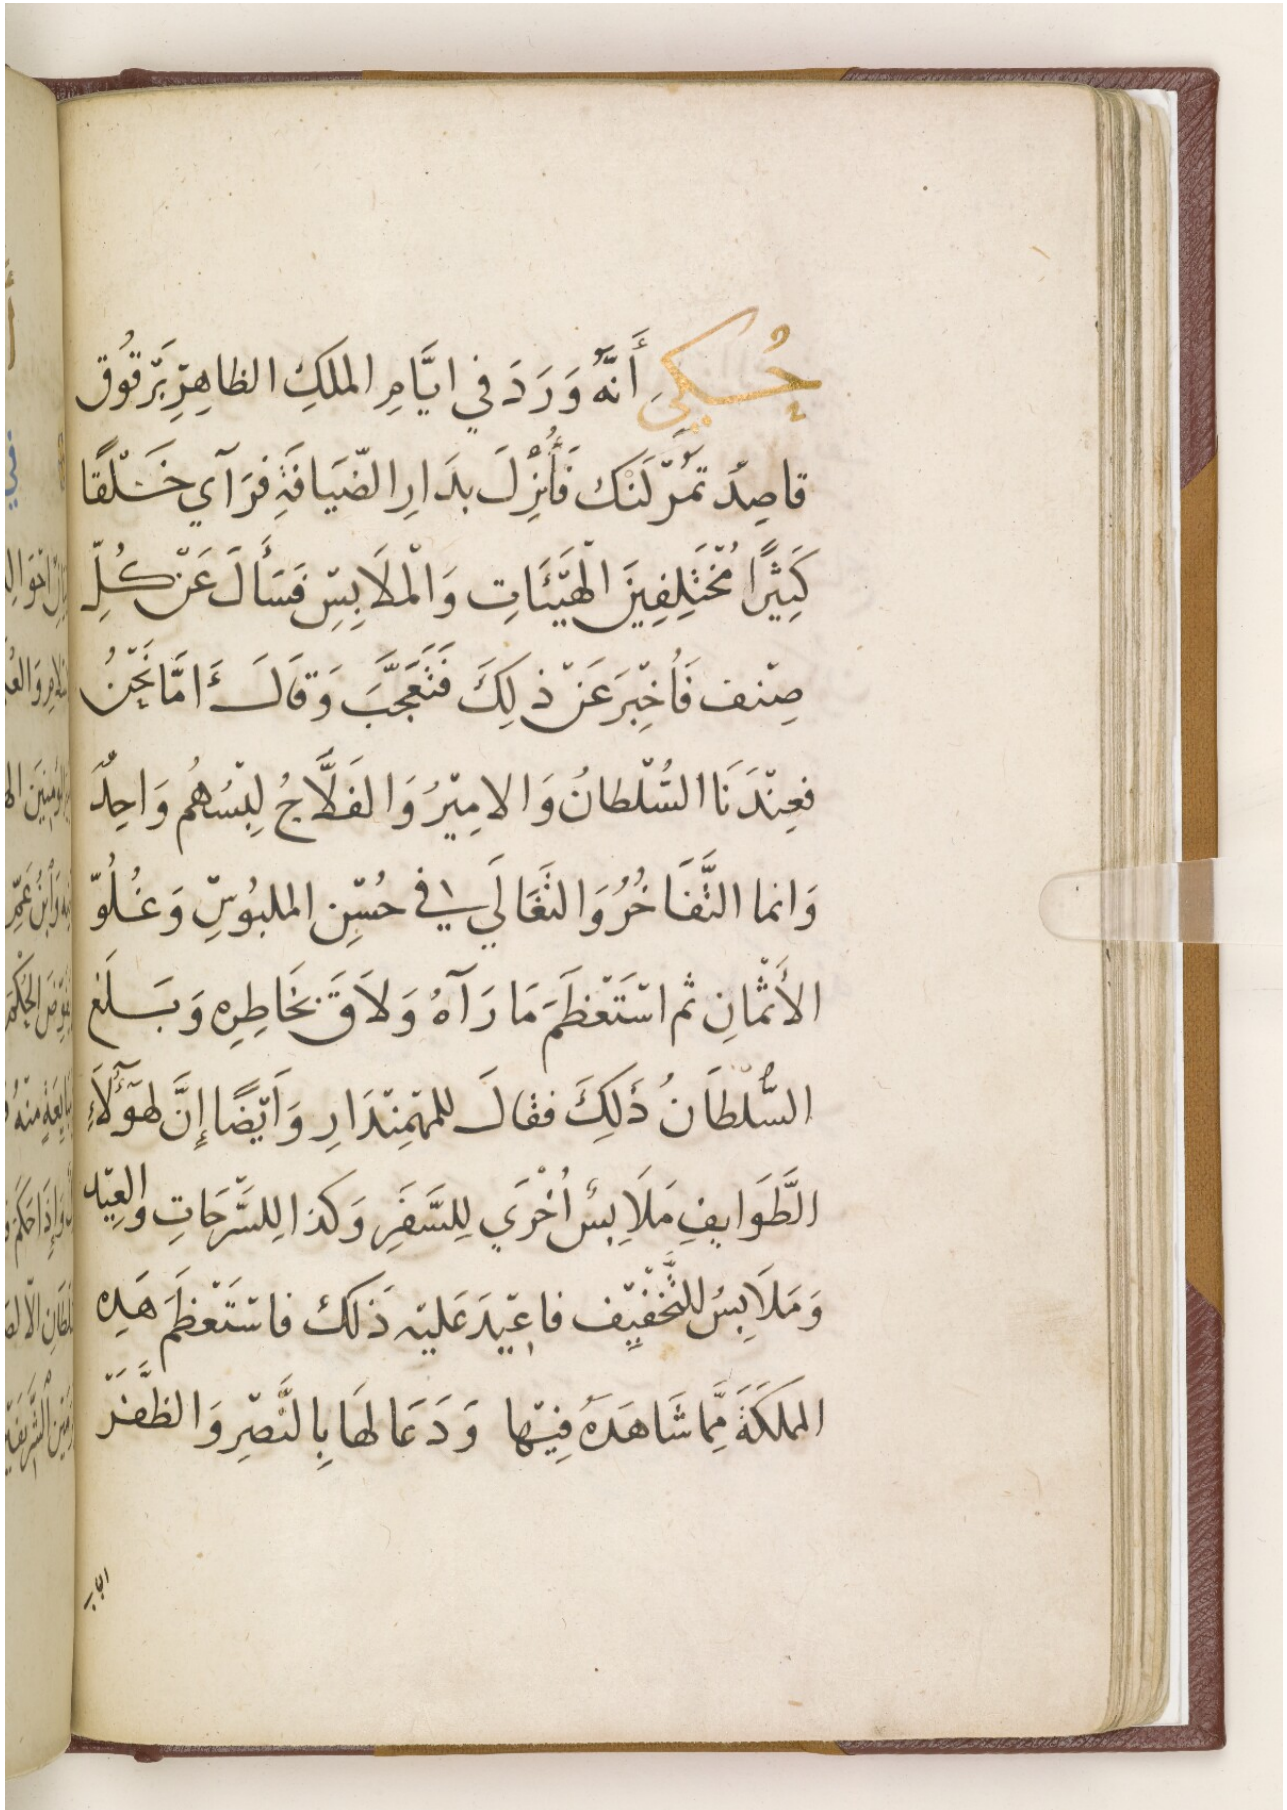 حُكِيَ أَنَّهُ وَرَدَ في ايَّامِ الملكِ الظاهِرِ بَرْقُوق
قاصِدُ تَمُرْلَنْك فَأُنْزِلَ بدَارِ الضّيَافَةِ فرَآي خَلْقًا
كَثِيْرًا مُخْتَلِفِيْنَ الْهَيْئَاتِ وَالْمَلَابِسِ فَسَأَلَ عَنْ كُلِّ
صِنْف فَأُخْبِرَ عَنْ ذلِكَ فَتَعَجَّبَ وَقَالَ ءَامَّا نَحْنُ
فعِنْدَنَا السُّلْطانُ وَالامِيْرُ وَالفَلَّاحُ لِبْسُهُم وَاحِدٌ
وَانما التَّفَاخُرُ وَالتَّغَالَي في حُسْنِ الملبُوسِ وَغُلُوّ
الأَثْمَانِ ثم اسْتَعْظَمَ مَا رَآهُ وَلَاقَ بخَاطِرِه وَبَلَغ
السُّلْطَانُ ذَلِكَ فقالَ للمهْمِنْدَارِ وَاَيْضًا إِنَّ لهَؤُلَآءِ
الطَّوَايفِ مَلَابِسُ اُخْرَي لِلسَّفَرِ وَكذا لِلسَّرْحَاتِ والعِيْد
وَمَلَابِسُ للتَّخْفيْف فاعِيْدَ عَليْه ذَلك فاسْتَعْظَمَ هَذِه
المملكَةَ مِمَّا شَاهَدَهُ فِيْها وَدَعَا لهَا بِالنَّصْرِ وَالظَّفَرْ
الباب